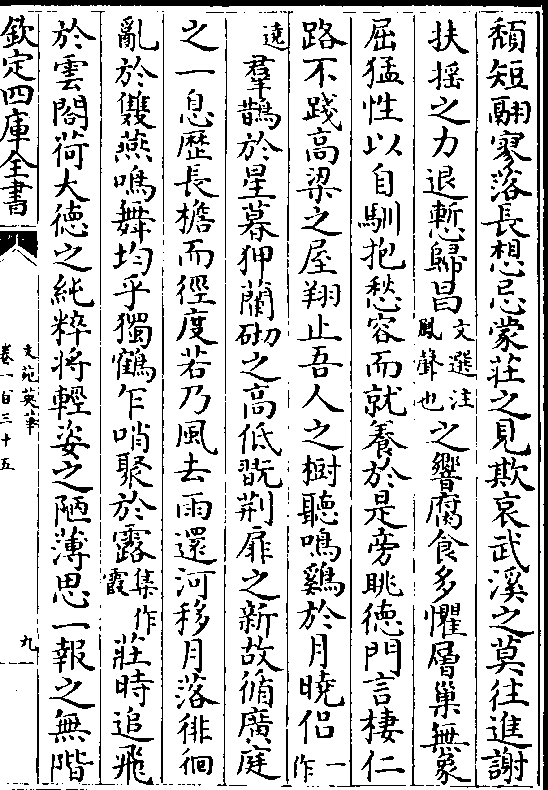 頽短翮寥落長想忌蒙莊之見欺哀武溪之莫往進謝
扶揺之力退慙歸昌文選注鳳聲也之響腐食多懼層巢無象
屈猛性以自馴抱愁容而就養於是旁眺德門言棲仁
路不踐高梁之屋翔止吾人之樹聽鳴雞於月曉侣一作
逵羣鵲於星暮狎蘭砌之高低翫荆扉之新故循廣庭
之一息歴長檐而徑度若乃風去雨還河移月落徘徊
亂於雙燕鳴舞均乎獨鶴乍哨聚於露集作霞莊時追飛
於雲閣荷大徳之純粹将輕姿之陋薄思一報之無階
欽定四庫全書
文苑英華
卷一百三十五
九